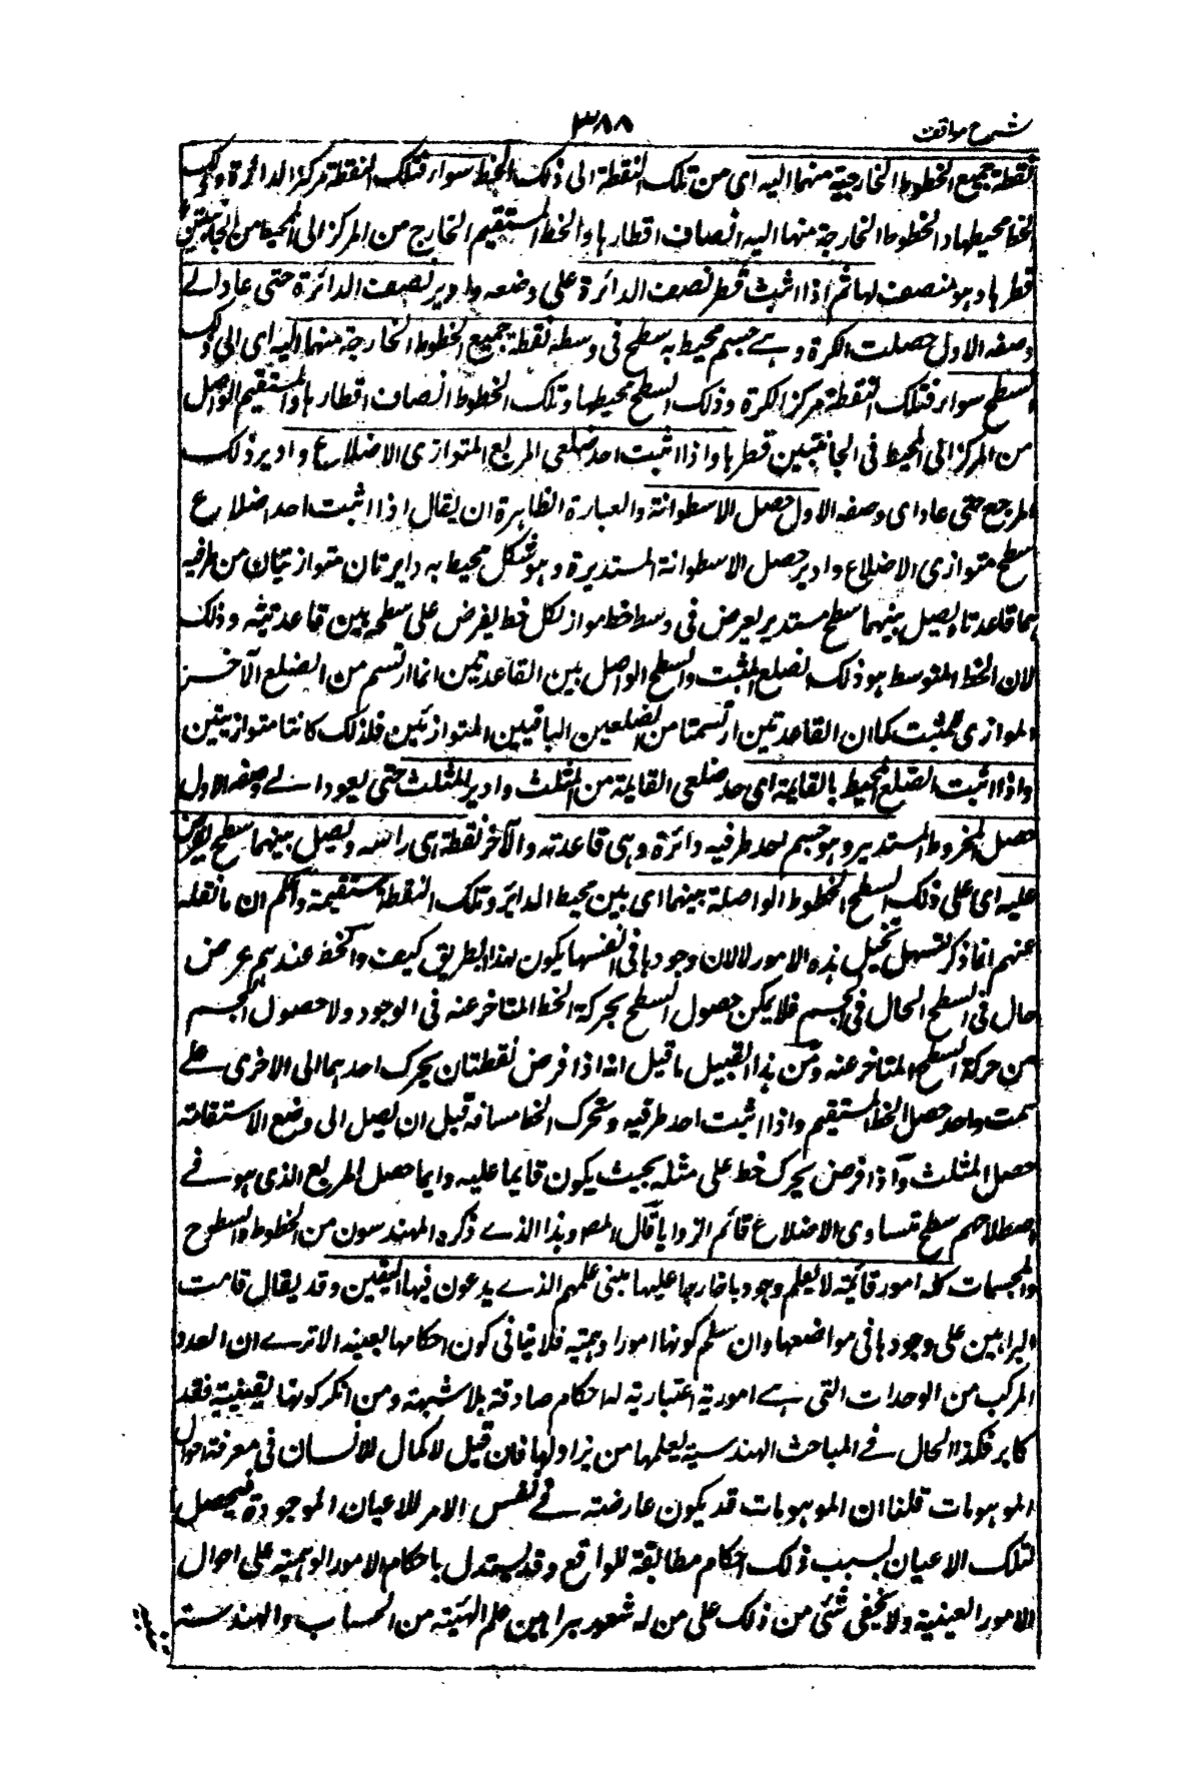 شرح مواقف
٣٨٨
نقطة جميع الخطوط الخارجية منهما اليه اى من تلك النقطة الى ذلك الخط سواء فتلك النقطة مركز الدائرة وذلك
الخط محيطها والخطوط الخارجة منها اليه انصاف اقطارها والخط المستقيم الخارج من المركز الى المحيط من الجانبين
قطرها وهو منصف لها ثم اذا اثبت قطر نصف الدائرة على وضعه وادير نصف الدائرة حتى عاد الے
وضعه الاول حصلت الكرة وهے جسم محيط به سطح فى وسطه نقطة جميع الخطوط الخارجة منها اليه اى الى ذلك
السطح سواء فتلك النقطة مركز الكرة وذلك السطح محيطها وتلك الخطوط انصاف اقطارها والمستقيم الواصل
من المركز الى المحيط فى الجانبين قطرها واذا اثبت احد ضلعى المربع المتوازى الاضلاع وادير ذلك
المربع حتى عاد اى وضعه الاول حصل الاسطوانة والعبارة الظاهرة ان يقال اذا اثبت احد اضلاع
سطح متوازى الاضلاع وادير حصل الاسطوانة المستديرة وهو شكل محيط به دايرتان متوازيتان من طرفيه
هما قاعدتاه يصل بينهما سطح مستدير يفرض فى وسطه خط مواز لكل خط يفرض على سطحه بين قاعدتيه وذلك
لان الخط المتوسط هو ذلك الضلع المثبت والسطح الواصل بين القاعدتين انما ارتسم من الضلع الآخر
الموازى للمثبت كما ان القاعدتين ارتسمتا من الضلعين الباقيين المتوازئين فلذلك كانتا متوازيتين
واذا اثبت الضلع المحيط بالقايمة اى احد ضلعى القايمة من المثلث وادير المثلث حتى يعود الے وضعه الاول
حصل المخروط المستدير وهو جسم احد طرفيه دائرة وهى قاعدته والآخر نقطة هى راسه ويصل بينهما سطح يفرض
عليه اى على ذلك السطح الخطوط الواصلة بينهما اى بين محيط الدائرة وتلك النقطة مستقيمة واعلم ان ما نقله
عنهم انما ذكر لتسهل تخيل هذه الامور لا لان وجودها فى انفسها يكون بهذا الطريق كيف والخط عندهم عرض
حال فى السطح الحال فى الجسم فلا يمكن حصول السطح بحركة الخط المتاخر عنه فى الوجود ولا حصول الجسم
من حركة السطح المتاخر عنه ومن هذا القبيل ما قيل انه اذا فرض نقطتان يحرك احدهما الى الاخرى علے
سمت واحد حصل الخط المستقيم واذا اثبت احد طرفيه وتحرك الخط مسافة قبل ان يصل الى وضع الاستقامة
حصل المثلث واذا فرض يحرك خط على مثله بحيث يكون قايما عليه دايما حصل المربع الذى هو فے
اصطلاحهم سطح متساوى الاضلاع قائم الزوايا قال المص وهذا الذے ذكره المهندسون من الخطوط والسطوح
والمجسمات كله امور قائمة لا يعلم وجودها خارجا عليها مبنى علمهم الذے يدعون فيها اليقين وقد يقال قامت
البراهين على وجودها فى مواضعها وان سلم كونها امورا وهمية فلا ينافى كون احكامها بعينه الا ترے ان العدد
المركب من الوحدات التى هے امورية اعتبارية له احكام صادقة بلا شبهة ومن انكر كونها يقينية فقد
كابر فكذا الحال فے المباحث الهندسية يعلمها من يزاولها فان قيل لا كمال للانسان فى معرفة احوال
الموهومات قلنا ان الموهومات قد يكون عارضة فے نفس الامر للاعيان الموجودة فيحصل
لتلك الاعيان بسبب ذلك احكام مطابقة للواقع وقد يستدل باحكام الامور الوهمية على احوال
الامور العينية ولا يخفى شئ من ذلك على من له شعور ببراهين علم الهيئة من الحساب والهندسة